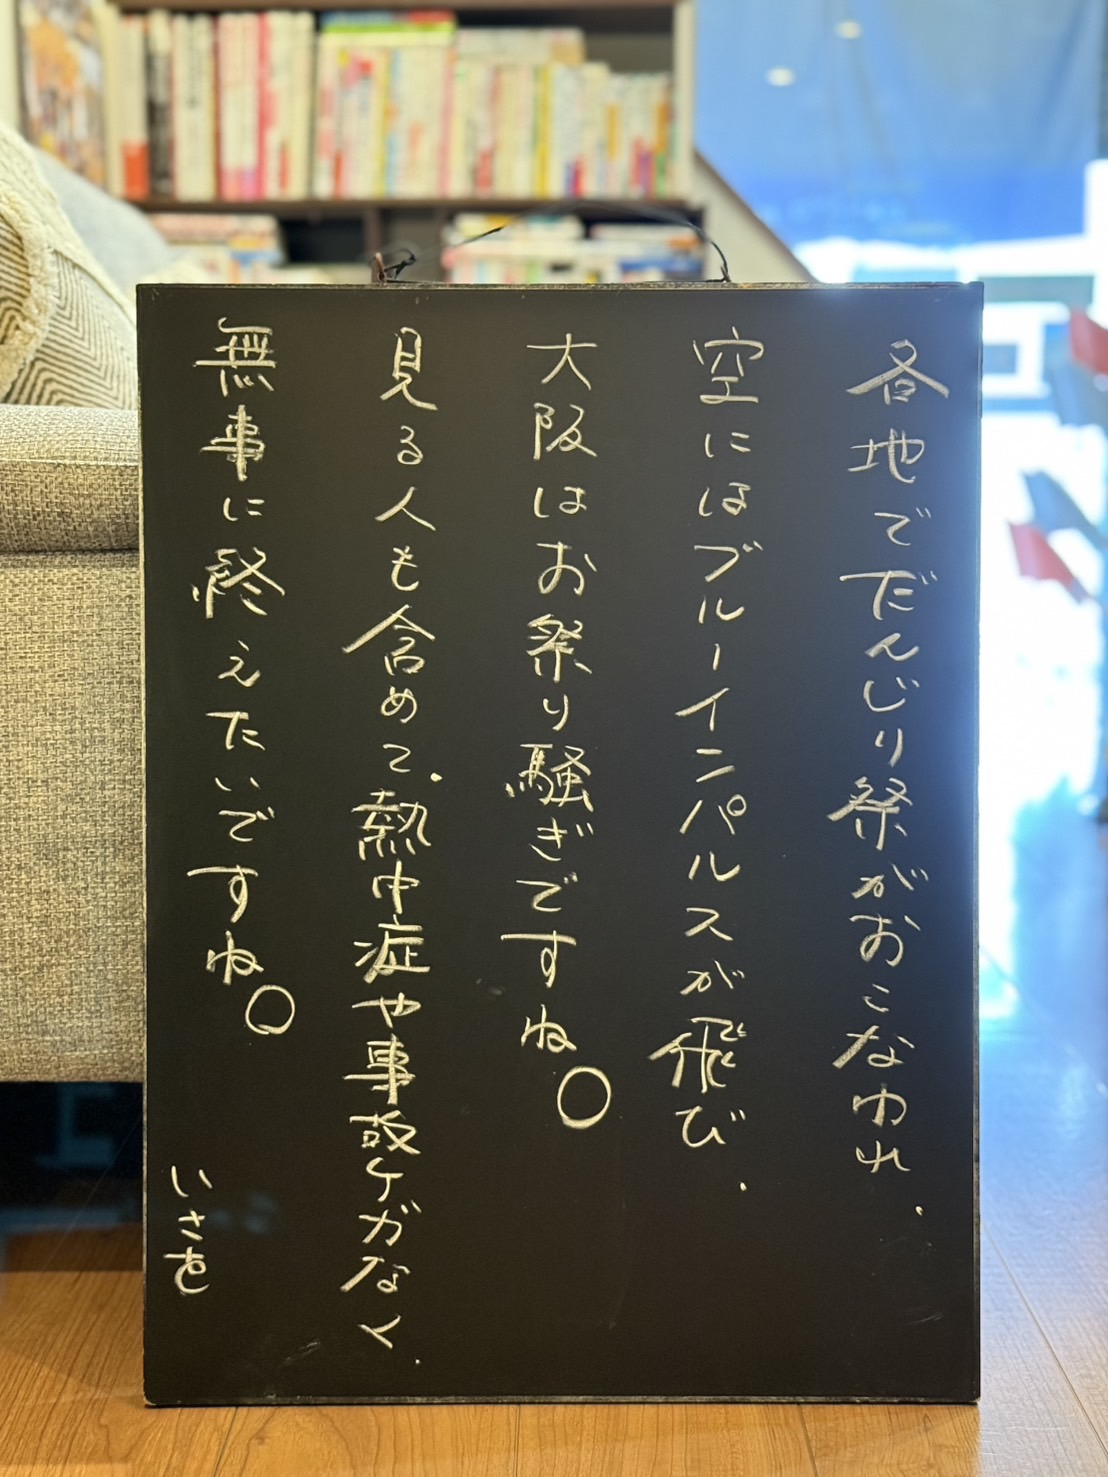 各地でだんじり祭がおこなわれ、
空にはブルーインパルスが飛び、
大阪はお祭り騒ぎですね。
見る人も含めて、熱中症や事故ケガなく、
無事に終えたいですね。
いさを